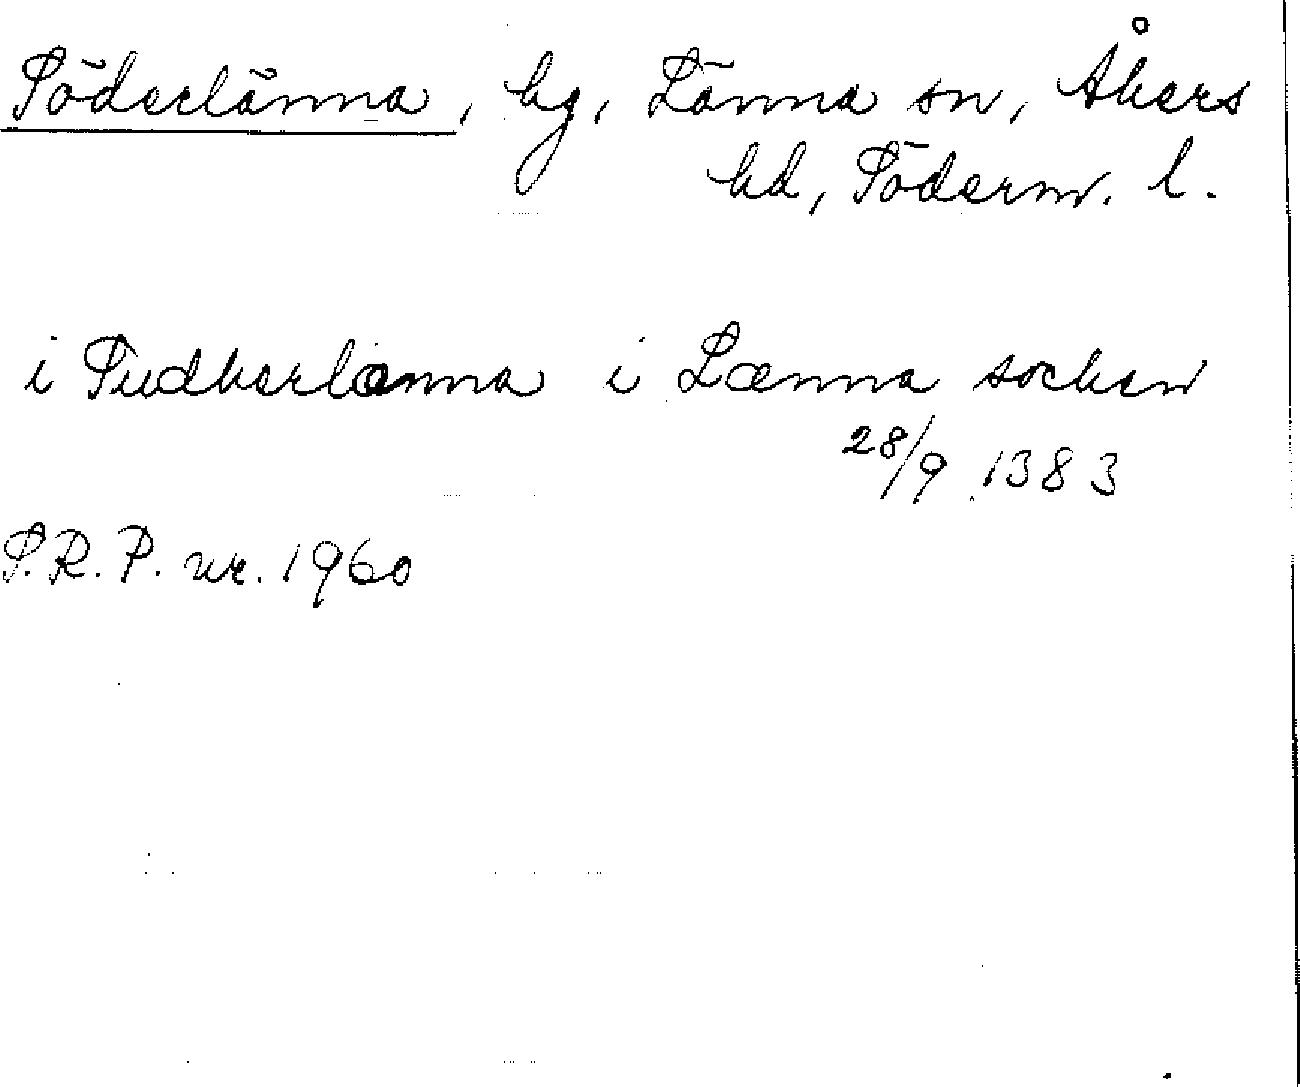 Söderlänna, hg, Länna sn, Åkers
hd, Söderm. l.
i Sudherlænna i Lænna socken
28/9 1383
S.R.P. nr. 1960